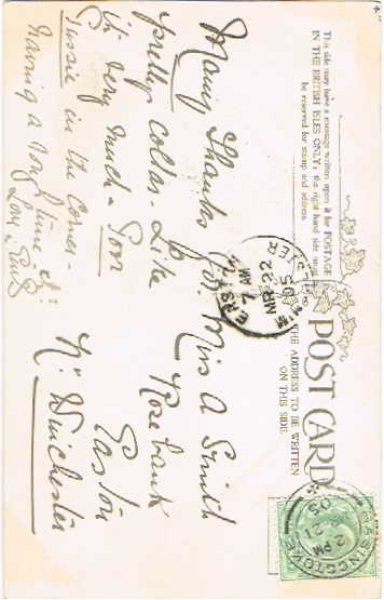 This side may have a message written upon it for POSTAGE
IN THE BRITISH ISLES ONLY: the right hand side must
be reserved for stamp and address.
POST CARD
THE ADDRESS TO BE WRITTEN
ON THIS SIDE.
BASINGSTOKE
2 PM
21
05
7 AM
MR 22
05
Many Thanks for
pretty collar. Like
it very much. Poor
Tussie in the corner
having a
time
Love
Miss A Smith
Rosebank
Easton
Nr Winchester